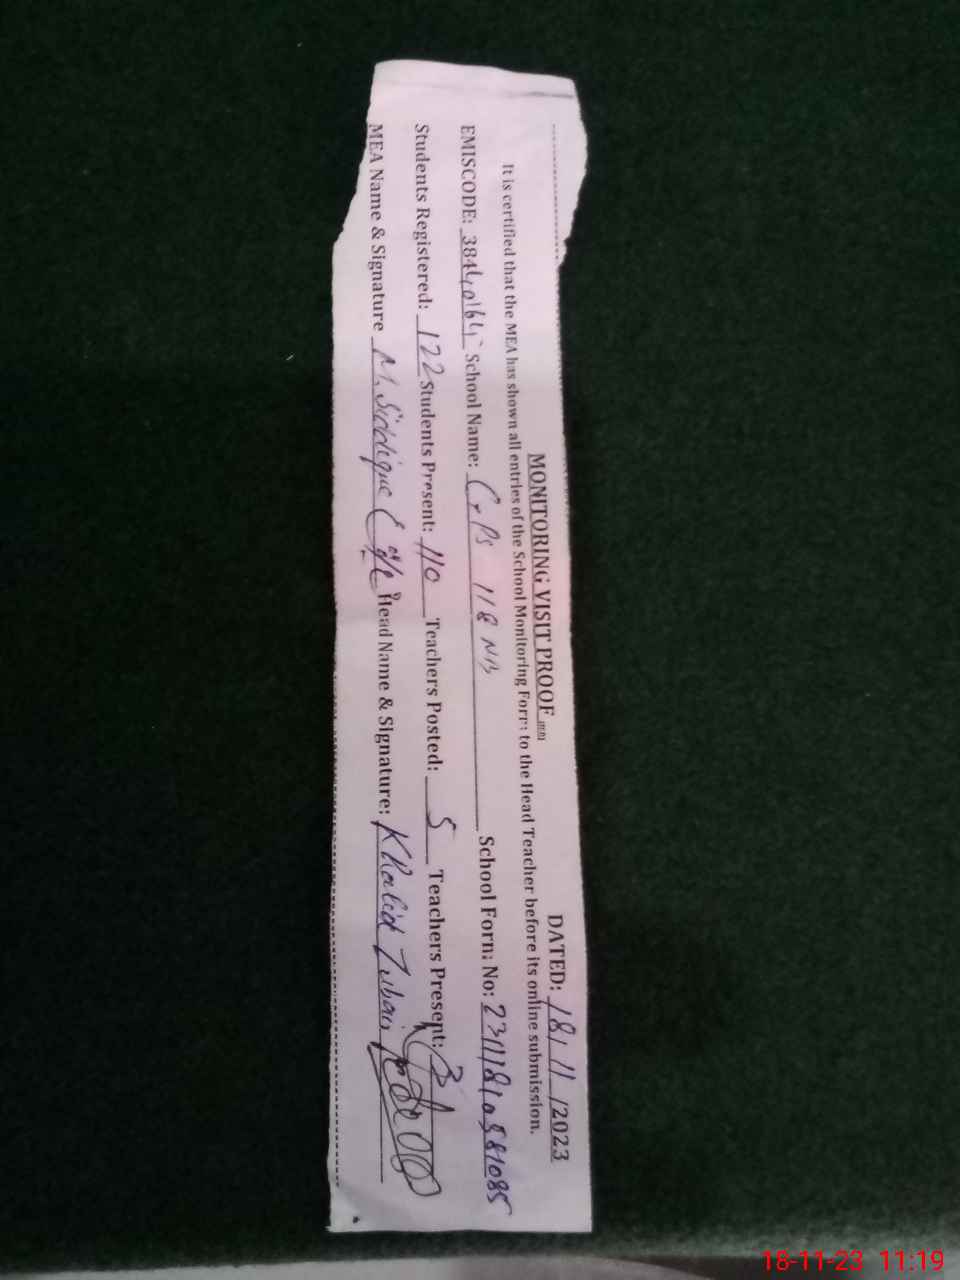 MONITORING VISIT PROOF
DATED: 18/11/2023
It is certified that the MEA has shown all entries of the School Monitoring Form to the Head Teacher before its online submission.
EMISCODE: School Name: GPS 118 NB School Form No: 23111810581085
Students Registered: 122 Students Present: 110 Teachers Posted: 5 Teachers Present: 3
MEA Name & Signature M. Siddique Head Name & Signature: Khalid Zubair
18-11-23 11:19